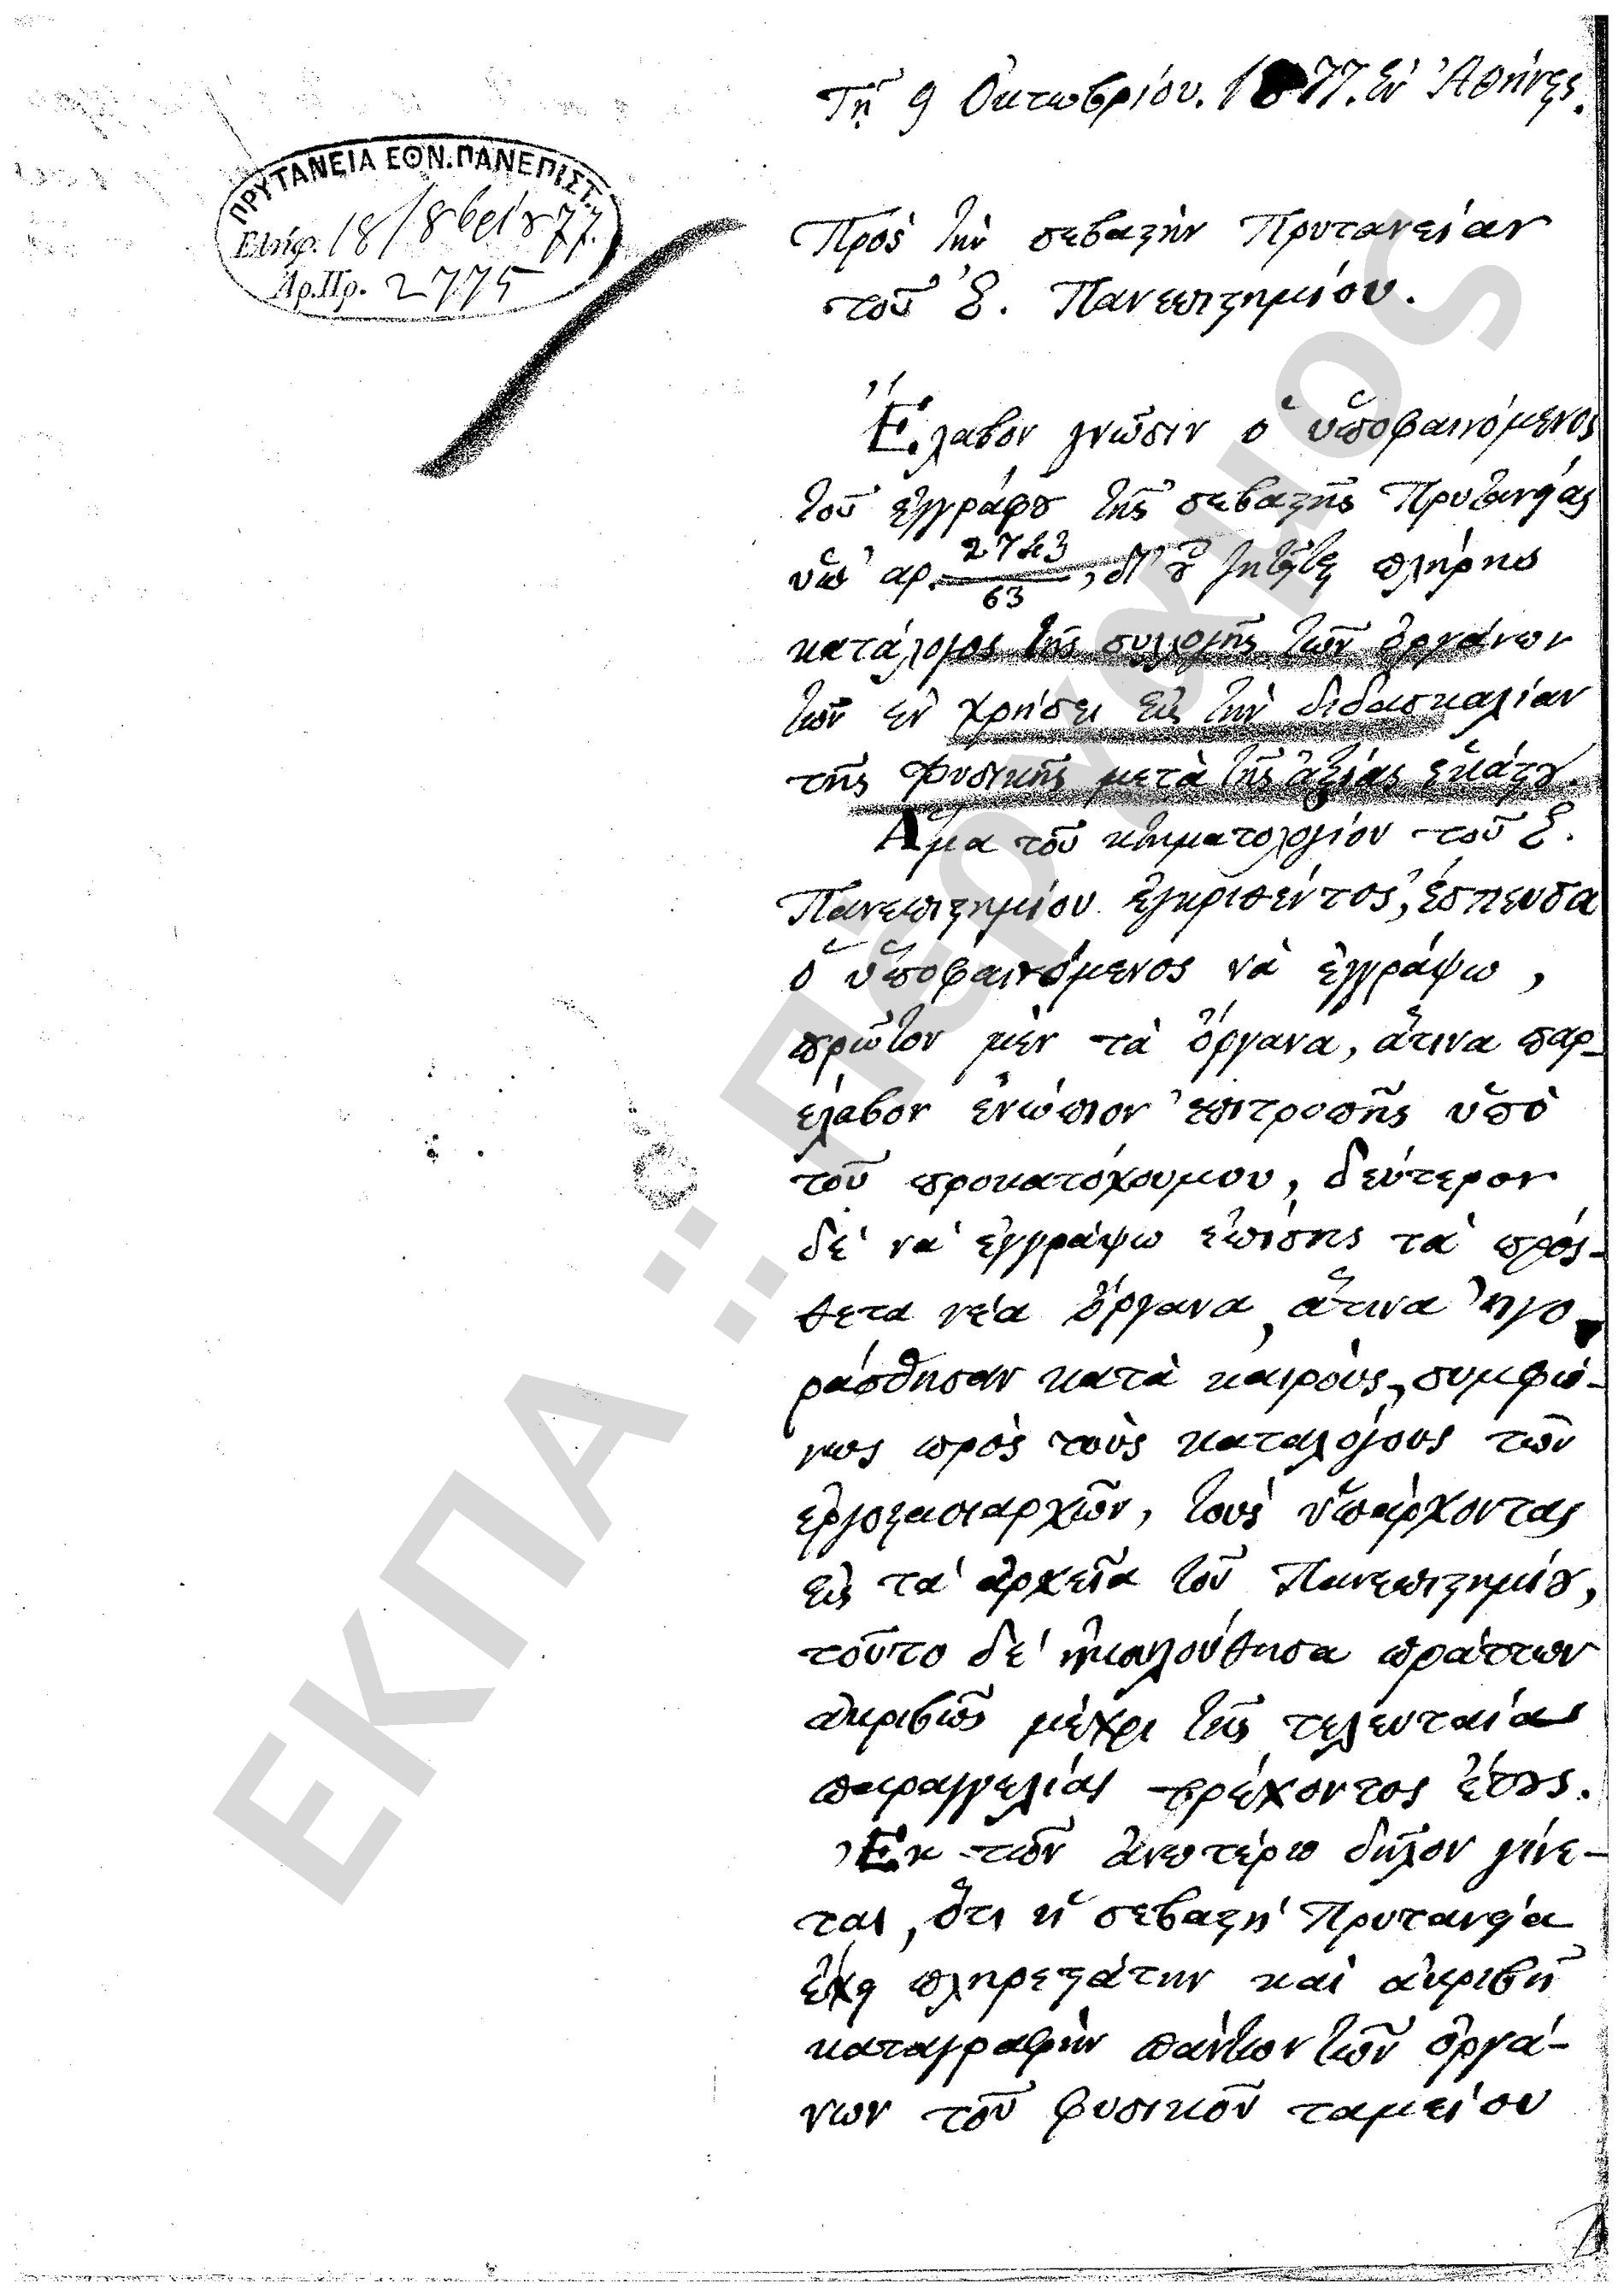 Τῇ 9 Ὀκτωβρίου. 1877. ἐν Ἀθήναις.
ΠΡΥΤΑΝΕΙΑ ΕΘΝ. ΠΑΝΕΠΙΣΤ.
Ἐλήφ. 18/8βρίου 77.
Ἀρ.Πρ. 2775
Πρὸς τὴν σεβαστὴν Πρυτανείαν
τοῦ Ἐ. Πανεπιστημίου.
Ἔλαβον γνῶσιν ὁ ὑποφαινόμενος
τοῦ ἐγγράφου τῆς σεβαστῆς Πρυτανείας
ὑπ' αρ. 2743/63, δι' οὗ ζητεῖται πλήρης
κατάλογος τῆς συλλογῆς τῶν ὀργάνων
τῶν ἐν χρήσει εἰς τὴν διδασκαλίαν
τῆς Φυσικῆς μετὰ τῆς ἀξίας ἑκάστου.
Ἅμα τοῦ κτηματολογίου τοῦ Ἐ.
Πανεπιστημίου ἐγκριθέντος, ἔσπευσα
ὁ ὑποφαινόμενος νὰ ἐγγράψω,
πρῶτον μὲν τὰ ὄργανα, ἅτινα παρ-
έλαβον ἐνώπιον ἐπιτροπῆς ὑπὸ
τοῦ προκατόχουμου, δεύτερον
δὲ νὰ ἐγγράψω ἐπίσης τὰ πρόσ-
θετα νέα ὄργανα, ἅτινα ἠγο-
ράσθησαν κατὰ καιροὺς, συμφώ-
νως πρὸς τοὺς καταλόγους τῶν
ἐργοστασιαρχῶν, τοὺς ὑπάρχοντας
εἰς τὰ ἀρχεῖα τοῦ Πανεπιστημίου,
τοῦτο δὲ ἠκολούθησα πράττων
ἀκριβῶς μέχρι τῆς τελευταίας
παραγγελίας τρέχοντος ἔτους.
Ἐκ τῶν ἀνωτέρω δῆλον γίνε-
ται, ὅτι ἡ σεβαστὴ Πρυτανεία
ἔχει πληρεστάτην καὶ ἀκριβῆ
καταγραφὴν πάντων τῶν ὀργά-
νων τοῦ φυσικοῦ ταμείου
ΕΚΠΑ :: Πέργαμος